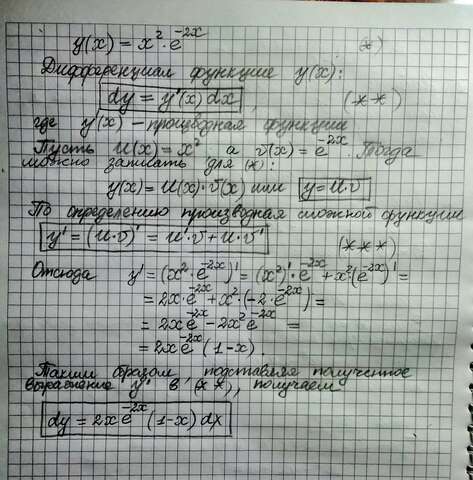 y(x) = x² · e⁻²ˣ (*)
Дифференциал функции y(x):
dy = y'(x) dx, (**)
где y'(x) – производная функции
Пусть u(x) = x² а v(x) = e⁻²ˣ. Тогда
можно записать для (*):
y(x) = u(x)·v(x) или y = u·v
По определению производная сложной функции
y' = (u·v)' = u'·v + u·v' (***)
Отсюда y' = (x²·e⁻²ˣ)' = (x²)'·e⁻²ˣ + x²(e⁻²ˣ)' =
= 2x·e⁻²ˣ + x²·(-2·e⁻²ˣ) =
= 2xe⁻²ˣ - 2x²e⁻²ˣ =
= 2xe⁻²ˣ (1-x).
Таким образом подставляя полученное
выражение y' в (**), получаем
dy = 2xe⁻²ˣ (1-x) dx